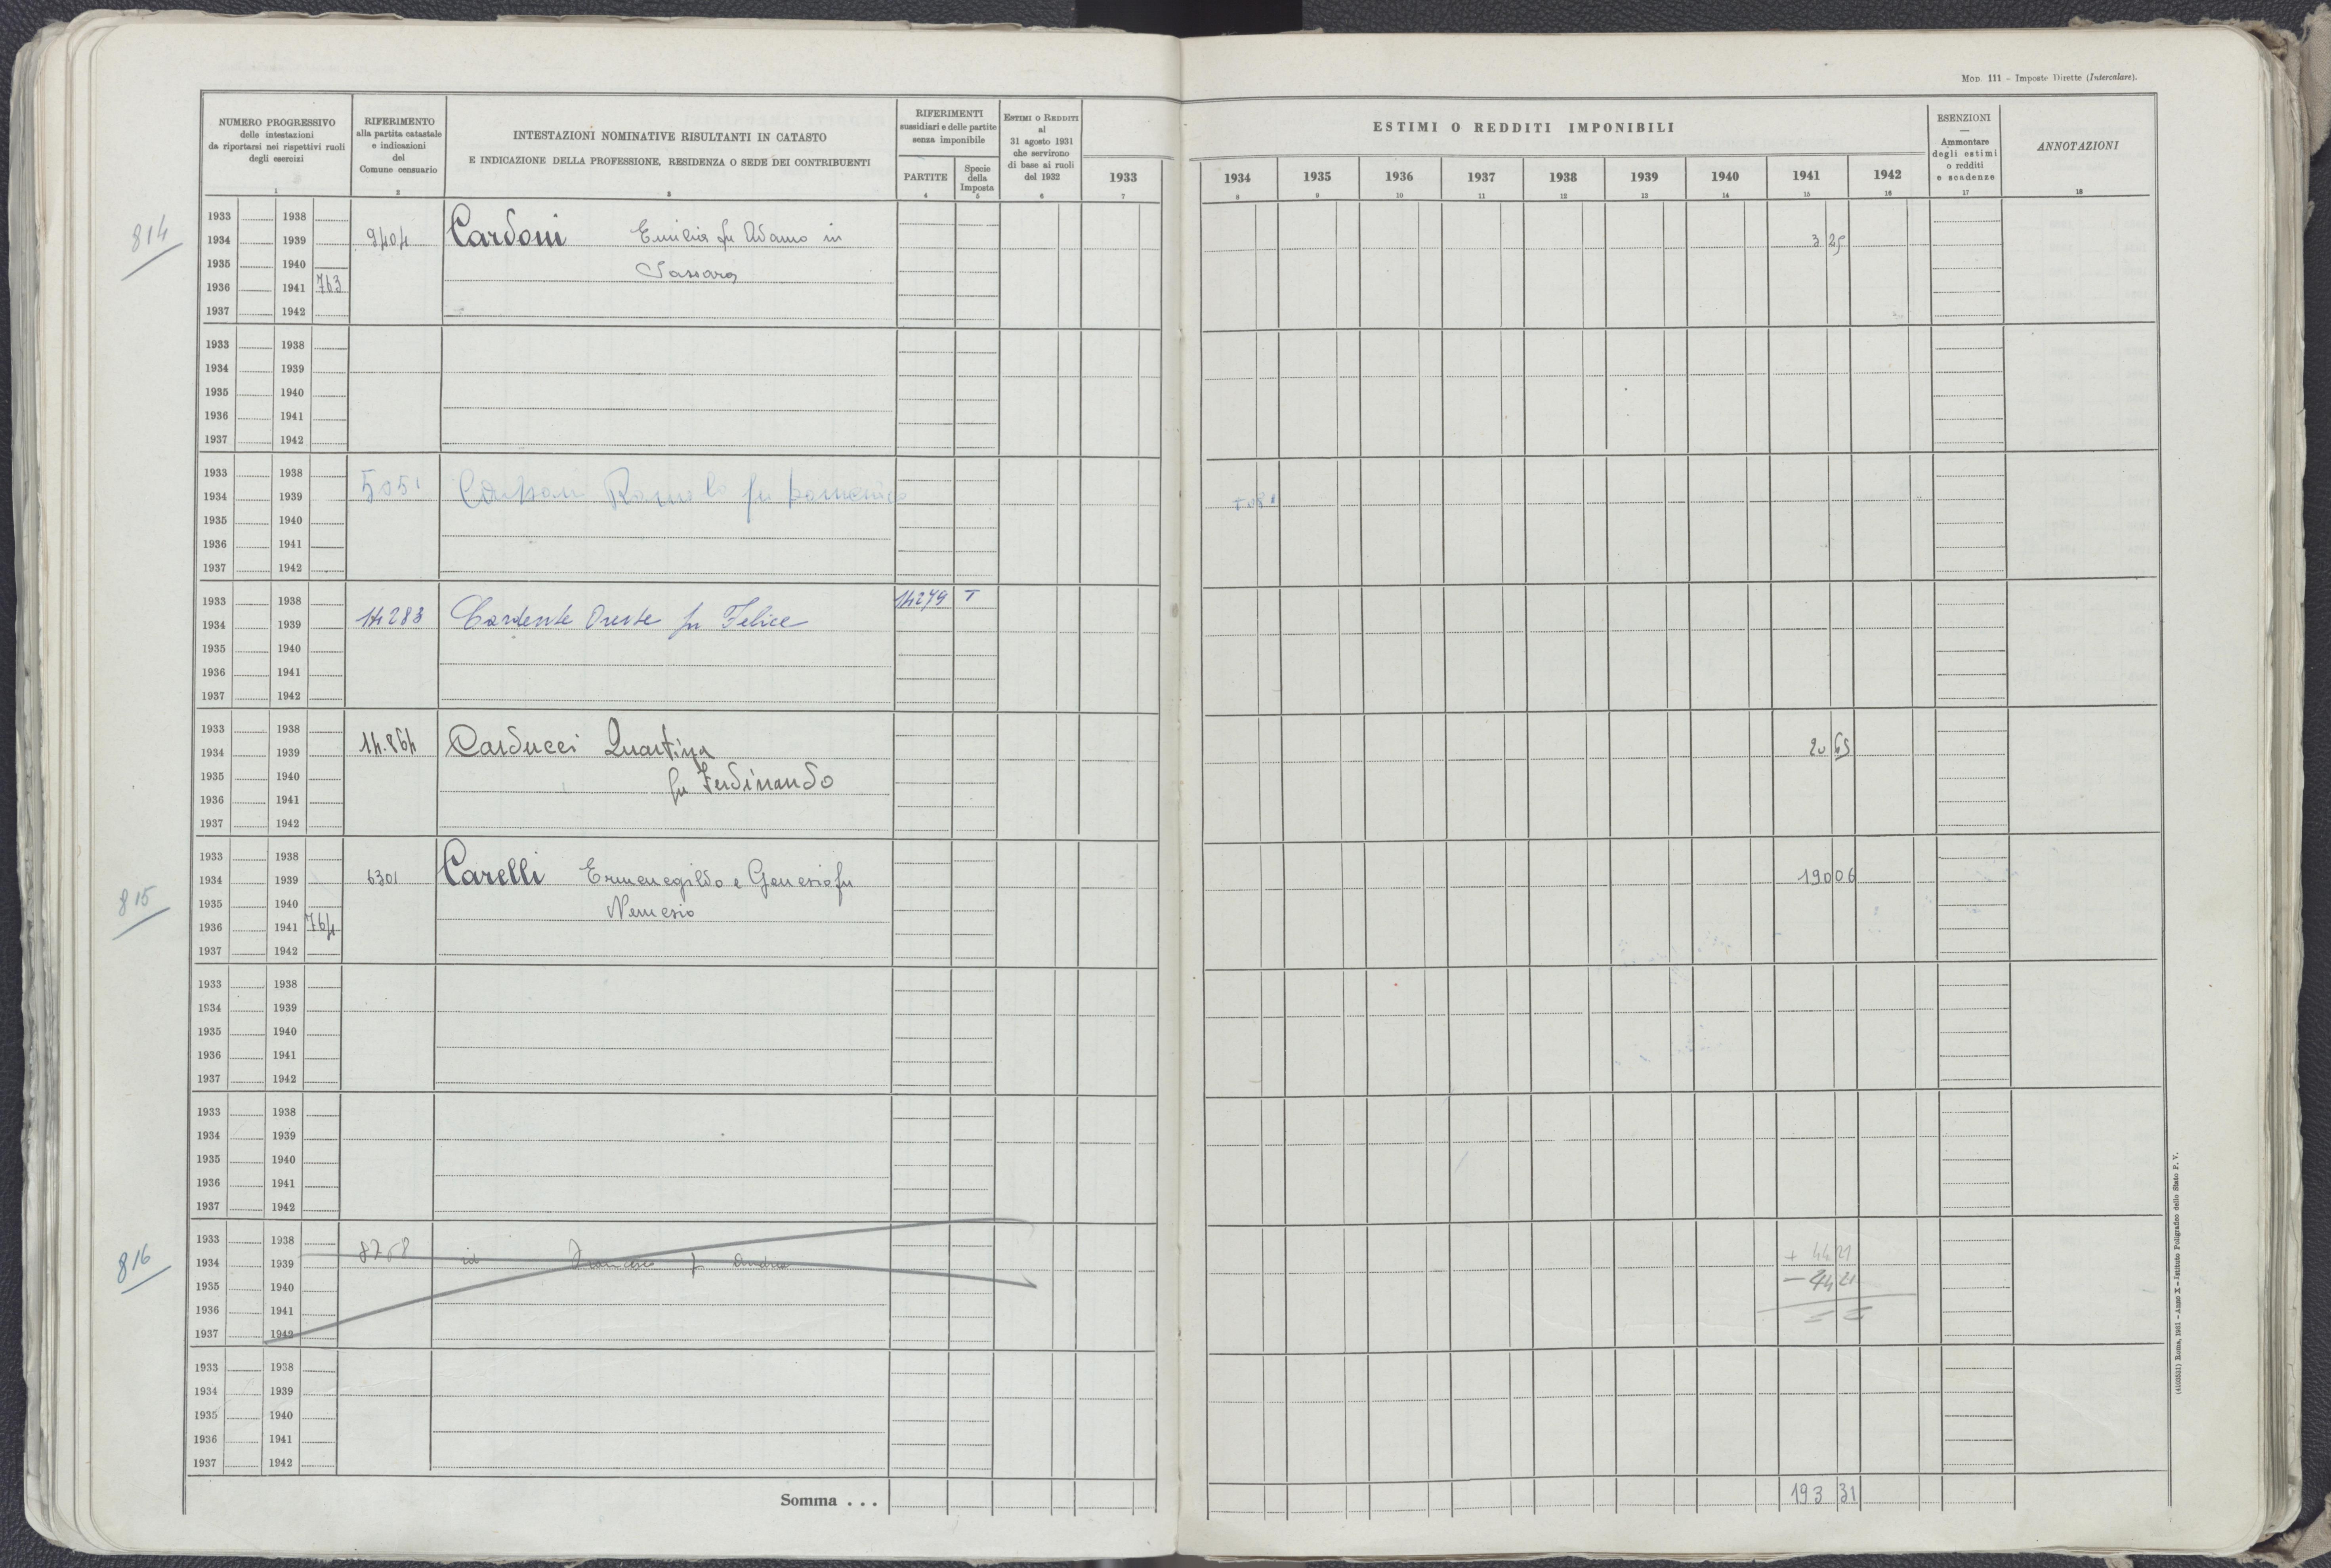 Mod. 111 - Imposte Dirette (Intercalare).
NUMERO PROGRESSIVO
delle intestazioni
da riportarsi nei rispettivi ruoli
degli esercizi
1
RIFERIMENTO
alla partita catastale
e indicazioni
del
Comune censuario
2
INTESTAZIONI NOMINATIVE RISULTANTI IN CATASTO
E INDICAZIONE DELLA PROFESSIONE, RESIDENZA O SEDE DEI CONTRIBUENTI
3
RIFERIMENTI
sussidiari e delle partite
senza imponibile
PARTITE
4
Specie
della
Imposta
5
ESTIMI O REDDITI
al
31 agosto 1931
che servirono
di base ai ruoli
del 1932
6
1933
7
ESTIMI O REDDITI IMPONIBILI
1934 1935 1936 1937 1938 1939 1940 1941 1942
8 9 10 11 12 13 14 15 16
ESENZIONI
—
Ammontare
degli estimi
o redditi
e scadenze
17
ANNOTAZIONI
18
814
1933 1938
1934 1939 9404 Cardoni Emilia fu Adamo in 3 25
1935 1940
1936 1941 763
1937 1942
1933 1938
1934 1939
1935 1940
1936 1941
1937 1942
1933 1938
1934 1939 5051 Romolo fu Domenico
1935 1940
1936 1941
1937 1942
1933 1938 14279 T
1934 1939 14283 Cardente Oreste fu Felice
1935 1940
1936 1941
1937 1942
1933 1938
1934 1939 14.864 Carducci Quartina 20 65
1935 1940 fu Ferdinando
1936 1941
1937 1942
815
1933 1938
1934 1939 6301 Carelli Ermenegildo e Genesio fu 190 06
1935 1940 Nemesio
1936 1941 764
1937 1942
1933 1938
1934 1939
1935 1940
1936 1941
1937 1942
1933 1938
1934 1939
1935 1940
1936 1941
1937 1942
816
1933 1938 + 44 21
1934 1939 8768 id Francesco fu Andrea
1935 1940 - 44 21
1936 1941 = =
1937 1942
1933 1938
1934 1939
1935 1940
1936 1941
1937 1942
Somma . . . 193 31
(4103531) Roma, 1931 - Anno X - Istituto Poligrafico dello Stato P. V.